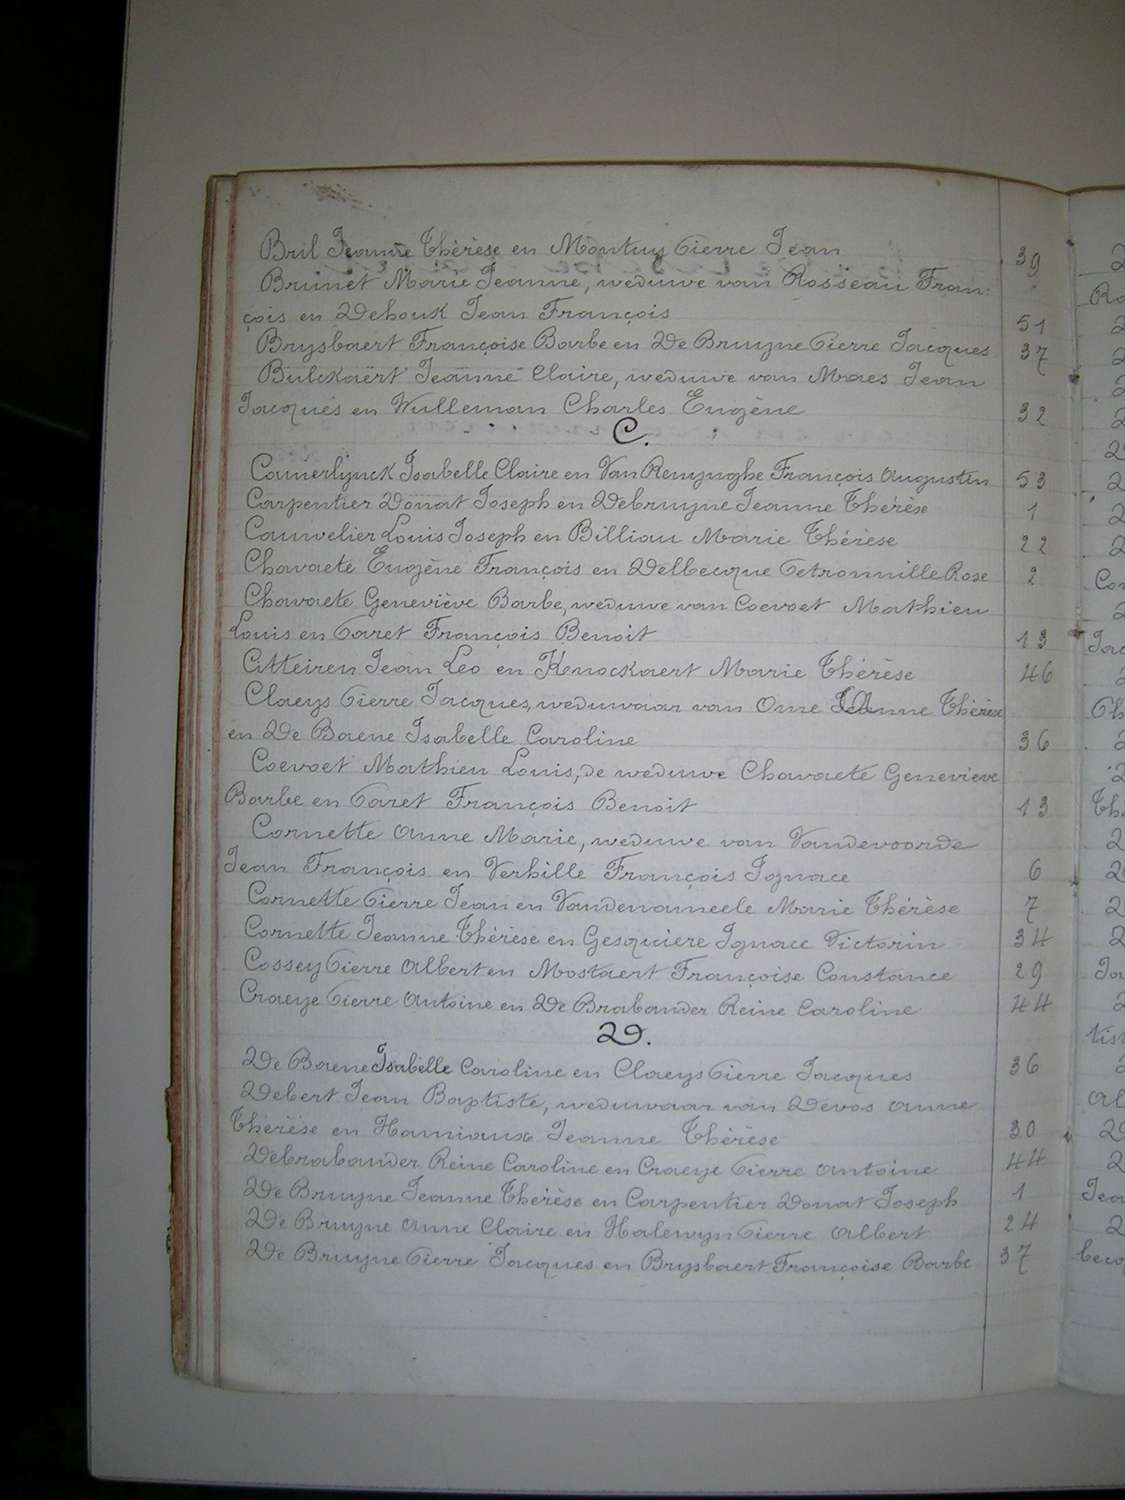 Bril Jeanne Thérèse en Montuy Pierre Jean 39
Brunet Marie Jeanne, weduwe van Rosseau Fran-
çois en Dehouk Jean François 51
Brysbaert Françoise Barbe en De Bruyne Pierre Jacques 37
Bulckaert Jeanne Claire, weduwe van Maes Jean
Jacques en Wulleman Charles Eugène 32
C.
Camerlynck Isabelle Claire en Van Renynghe François Augustin 53
Carpentier Donat Joseph en Debruyne Jeanne Thérèse 1
Cauwelier Louis Joseph en Billiau Marie Thérèse 22
Chavaete Eugène François en Delbecque Petronnille Rose 2
Chavaete Geneviève Barbe, weduwe van Coevoet Mathieu
Louis en Paret François Benoit 13
Citteiren Jean Leo en Knockaert Marie Thérèse 46
Claeys Pierre Jacques, weduwaar van Ome Jeanne Thérèse
en De Baene Isabelle Caroline 36
Coevoet Mathieu Louis, de weduwe Chavaete Genevieve
Barbe en Paret François Benoit 13
Cornette Anne Marie, weduwe van Vandevoorde
Jean François en Verhille François Ignace 6
Cornette Pierre Jean en Vandenameele Marie Thérèse 7
Cornette Jeanne Thérèse en Gesquiere Ignace Victorin 34
Cossey Pierre Albert en Mostaert Françoise Constance 29
Craeye Pierre Antoine en De Brabander Reine Caroline 44
D.
De Baene Isabelle Caroline en Claeys Pierre Jacques 36
Debert Jean Baptiste, weduwaar van Devos Anne
Thérèse en Hamiaux Jeanne Thérèse 30
Debrabander Reine Caroline en Craeye Pierre Antoine 44
De Bruyne Jeanne Thérèse en Carpentier Donat Joseph 1
De Bruyne Anne Claire en Halewyn Pierre Albert 24
De Bruyne Pierre Jacques en Brysbaert Françoise Barbe 37